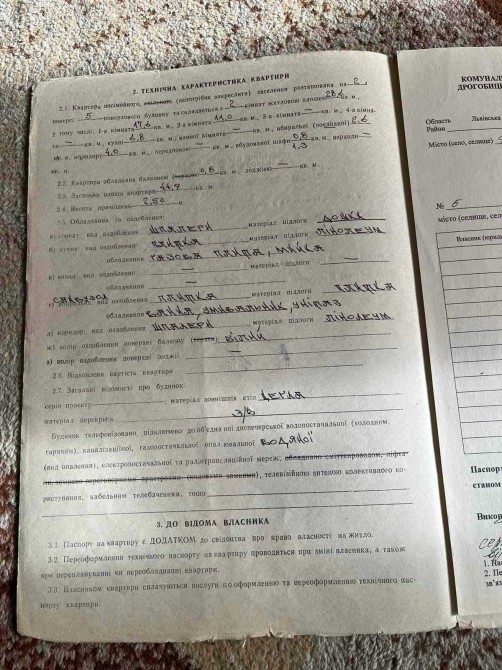 2. ТЕХНІЧНА ХАРАКТЕРИСТИКА КВАРТИРИ
2.1. Квартира посімейного, (непотрібне закреслити) заселення розташована на 2
поверсі 5 поверхового будинку та складається з 2 кімнат житловою площею 28,6 кв. м.,
у тому числі: 1-а кімната 17,6 кв. м., 2-а кімната 11,0 кв. м., 3-я кімната — кв. м., 4-а кімна-
та — кв. м., кухні кв. м., ванної кімнати — кв. м., вбиральні (поєднаної) 2,6
кв. м., коридору 4,0 кв. м., передпокою — кв. м., вбудованої шафи 0,8 кв. м., веранди —
кв. м. 1,3
2.2. Квартира обладнана балконом 0,8 кв. м., лоджією — кв. м.
2.3. Загальна площа квартири 44,9 кв. м.
2.4. Висота приміщень 2,50 м.
2.5. Обладнання та оздоблення:
а) кімнат: вид оздоблення ШПАЛЕРИ матеріал підлоги ДОШКИ
б) кухня: вид оздоблення ПЛИТКА матеріал підлоги ЛІНОЛЕУМ
обладнання ГАЗОВА ПЛИТА, МИЙКА
в) ванна: вид оздоблення — матеріал підлоги —
обладнання —
САНВУЗОЛ вид оздоблення ПЛИТКА матеріал підлоги ПЛИТКА
обладнання ВАННА, УМИВАЛЬНИК, УНІТАЗ
д) коридор: вид оздоблення ШПАЛЕРИ матеріал підлоги ЛІНОЛЕУМ
ж) колір оздоблення поверхні балкону БІЛИЙ
з) колір оздоблення поверхні лоджії —
2.6. Відновлена вартість квартири
2.7. Загальні відомості про будинок:
серія проекту матеріал зовнішніх стін ЦЕГЛА
матеріал перекрить З/Б
Будинок телефонізовано, підключено до об'єднаної диспечерської водопостачальної (холодним,
гарячим), каналізаційної, газопостачальної опалювальної ВОДЯНОЇ
(вид опалення), електропостачальної та радіотрансляційної мереж, обладнано сміттєпроводом, ліфта-
ми, телевізійною антеною колективного ко-
ристування, кабельним телебаченням, тощо
3. ДО ВІДОМА ВЛАСНИКА
3.1. Паспорт на квартиру є ДОДАТКОМ до свідоцтва про право власності на житло.
3.2. Переоформлення технічного паспорту на квартиру проводиться при зміні власника, а також
при переплануванні чи переобладнанні квартири.
3.3. Власником квартири сплачуються послуги по оформленню та переоформленню технічного пас-
порту квартири.
КОМУНАЛ
ДРОГОБИЦ
Область Львівська
Район
Місто (село, селище)
№ 6
місто (селище, сел
Власник (юриди
Паспорт
станом
Викон
1. Нас
2. Пе
зв'яз